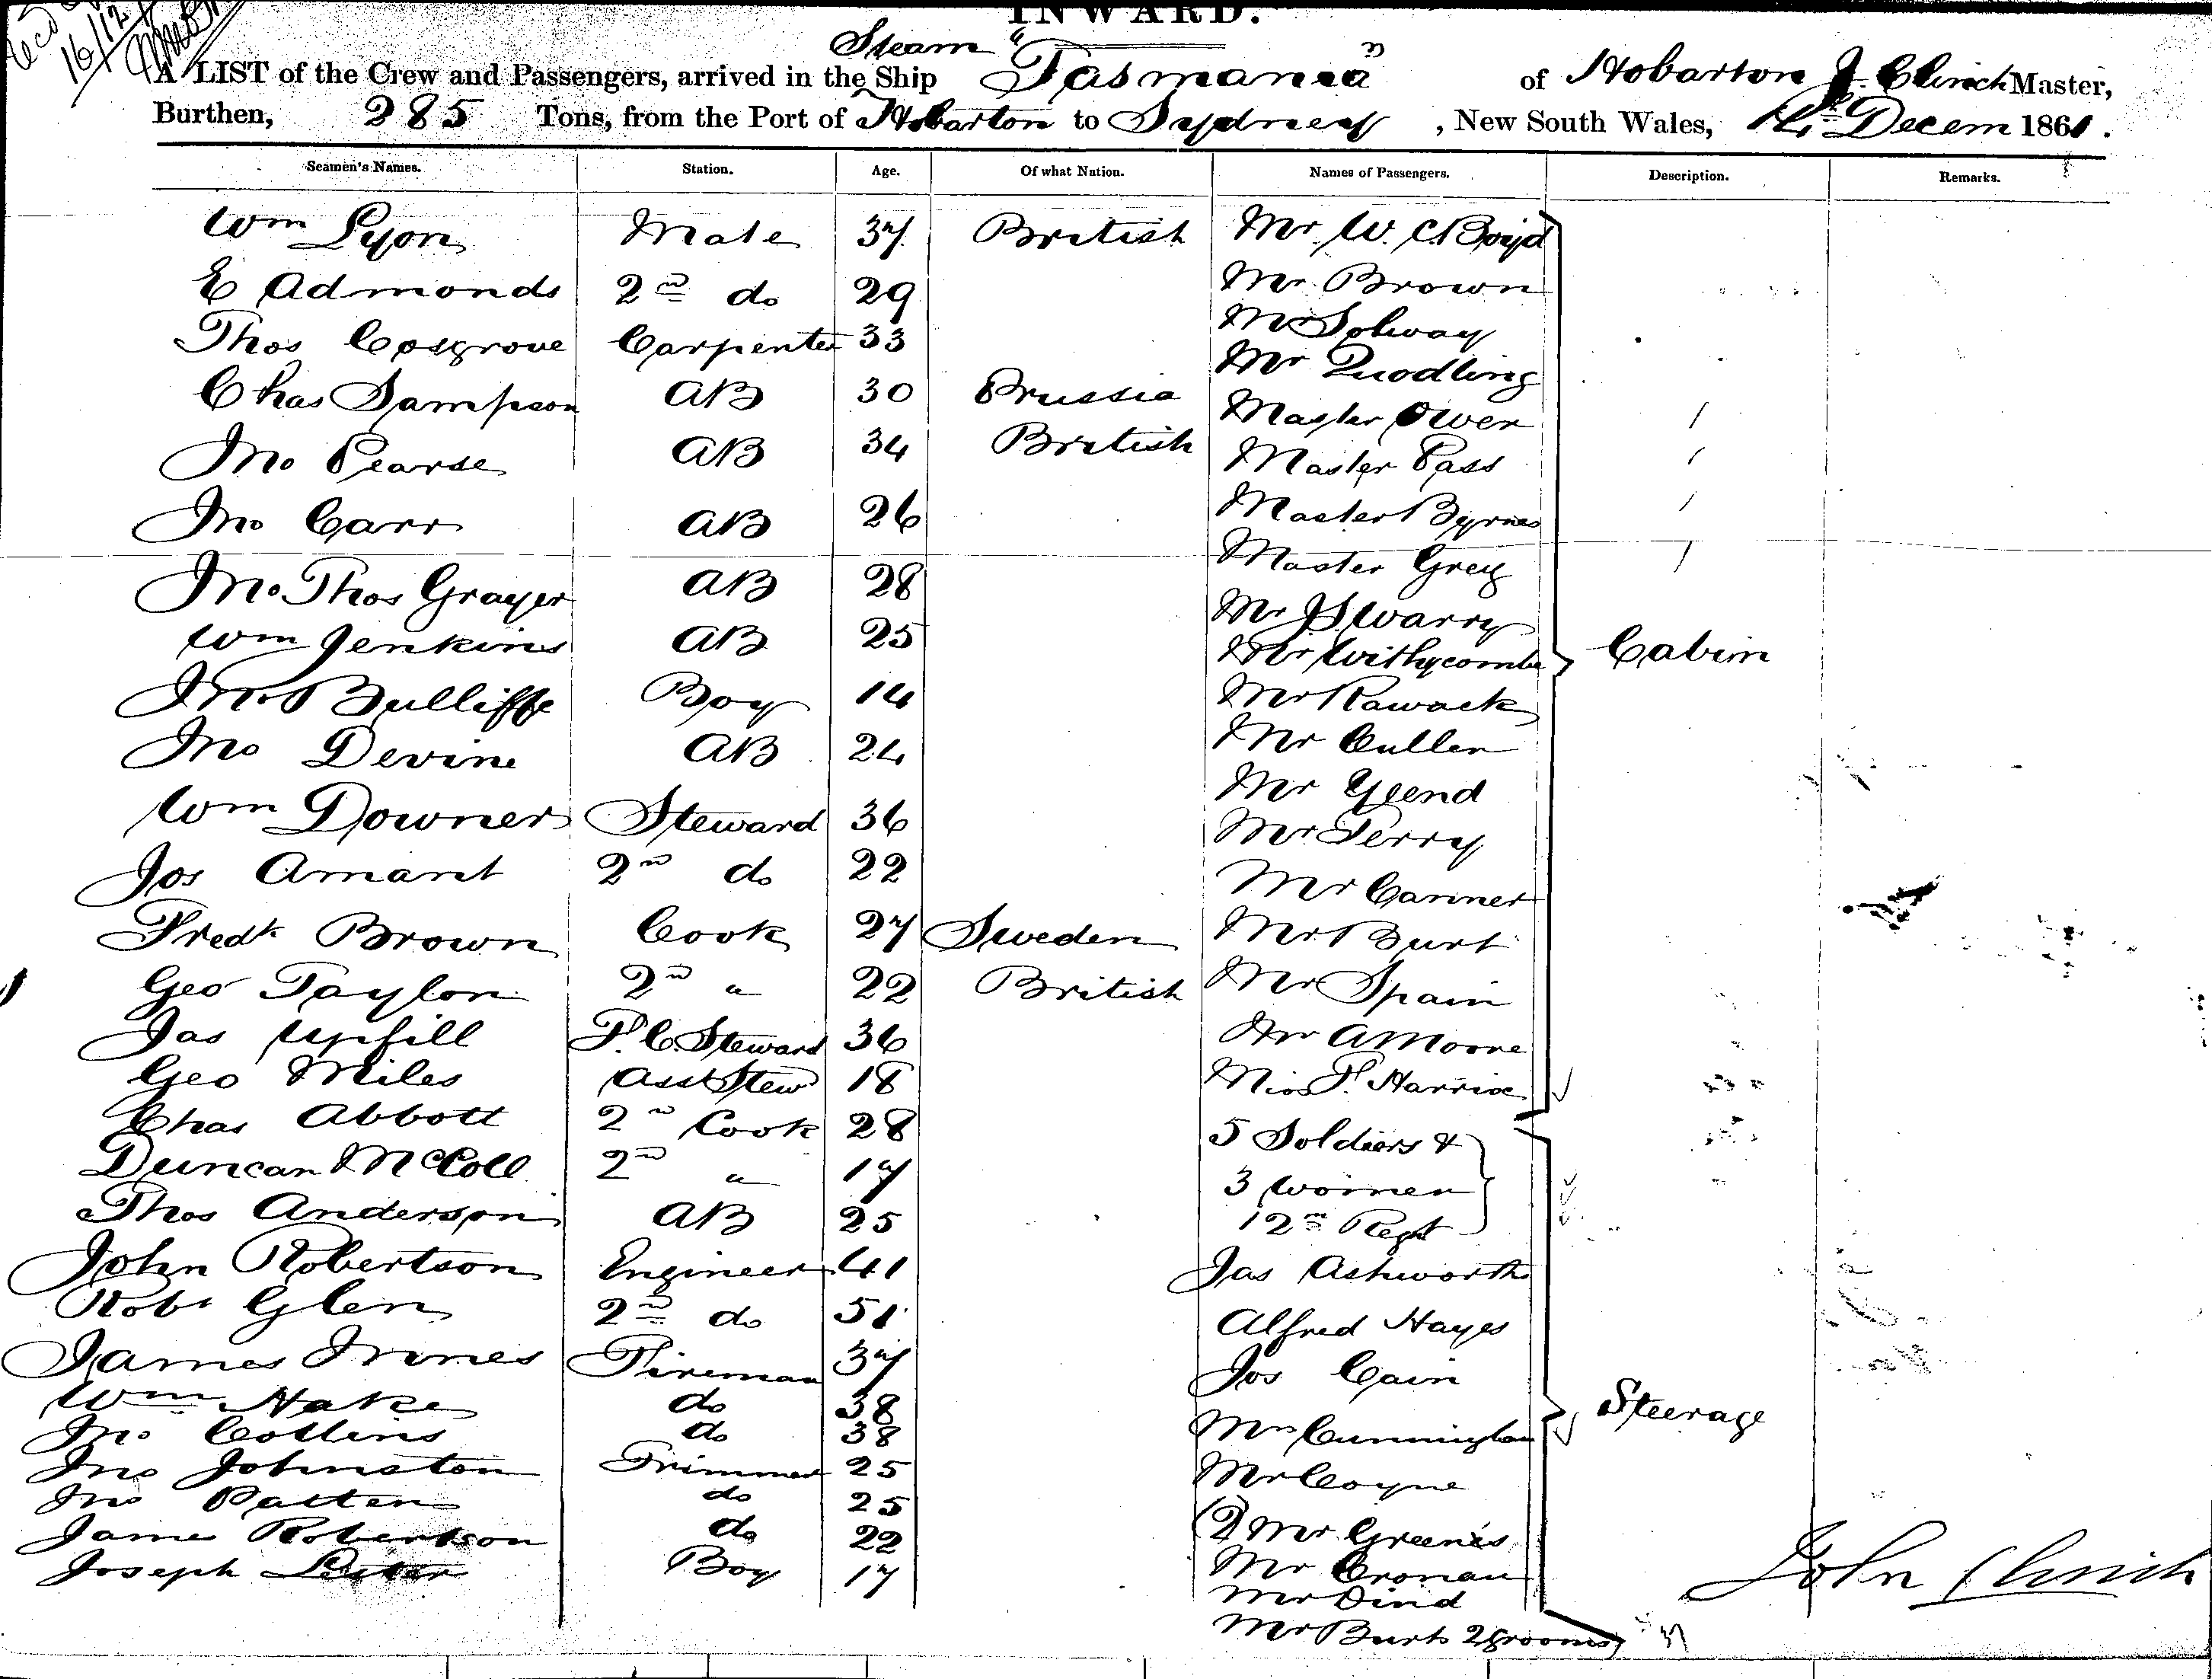 INWARD.
16/12
A LIST of the Crew and Passengers, arrived in the Steam Ship "Tasmania" of Hobarton J. Clinch Master,
Burthen, 285 Tons, from the Port of Hobarton to Sydney, New South Wales, Decem 1861.
Seamen's Names. Station. Age. Of what Nation. Names of Passengers. Description. Remarks.
Wm Lyon Mate 37 British Mr. W. C. Boyd
E Admonds 2nd do 29 Mr Brown
Thos Cosgrove Carpenter 33 Mr Solway
Mr Quodling
Chas Sampson AB 30 Prussia Master Owen
Jno Pearse AB 34 British Master Pass
Jno Carr AB 26 Master Byrnes
Master Grey
Jno. Thos Grayer AB 28 Mr J S Warry
Wm Jenkins AB 25 Mr Withycombe Cabin
Jno Bulliffe Boy 14 Mr Rawack
Jno Devine AB 24 Mr Cullen
Mr Yeend
Wm Downer Steward 36 Mr Perry
Jos Amant 2nd do 22 Mr Carmer
Fredk Brown Cook 27 Sweden Mr Burt
Geo Taylor 2nd " 22 British Mr Spain
Jas Upfill F. C. Steward 36 Mr A Moore
Geo Miles Asst Stew 18 Miss F. Harris
Chas Abbott 2nd Cook 28 5 Soldiers &
Duncan McColl 2nd " 17 3 women
Thos Anderson AB 25 12th Regt
John Robertson Engineer 41 Jas Ashworth
Robt Glen 2nd do 51 Alfred Hayes
James Innes Fireman 37 Jos Cain
Wm Hake do 38
Jno Collins do 38 Mrs Cunningham Steerage
Jno Johnston Trimmer 25 Mr Coyne
Jno Patten do 25
James Robertson do 22 (2) Mr Greenes
Joseph Lester Boy 17 Mr Cronan
Mr Dind
Mr Burts 2 grooms
John Clinch